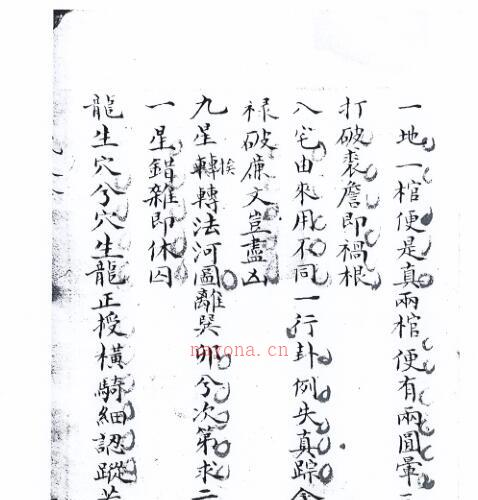 一地一棺便是真兩棺便有兩圓暈
打破裹簷即禍根
八宅由來用不同一行卦例失真踪
祿破廉文豈盡凶
九星轉轉法河圖離巽卯兮次第求
挨
一星錯雜即休囚
龍生穴兮穴生龍正授橫騎細認蹤
nayona.cn